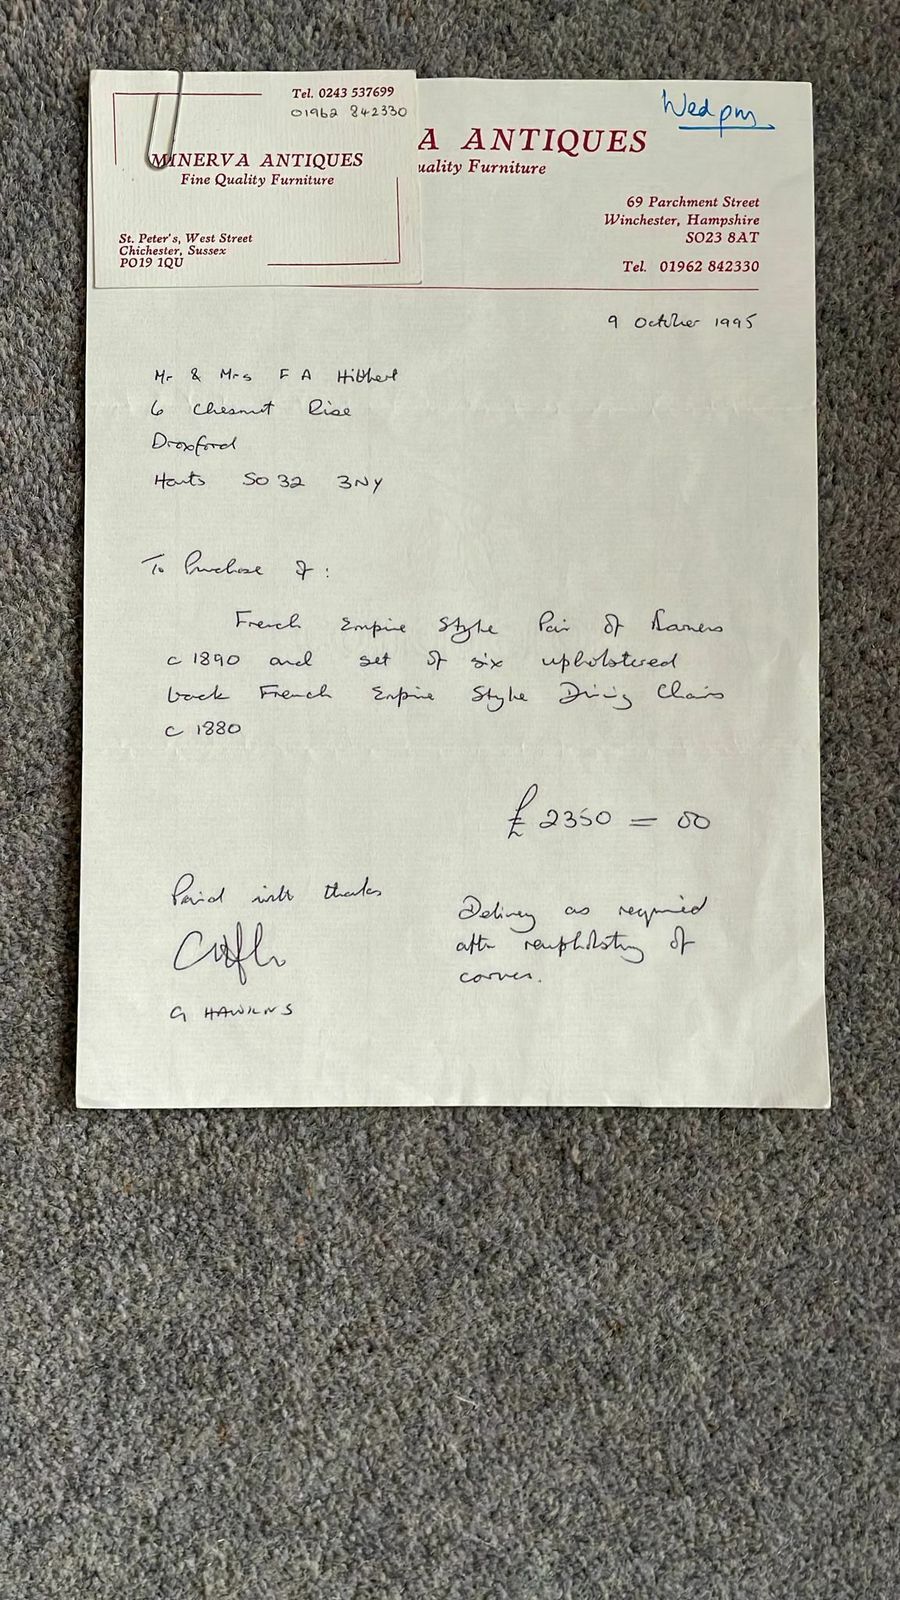 Tel. 0243 537699
01962 842330
MINERVA ANTIQUES
Fine Quality Furniture
St. Peter's, West Street
Chichester, Sussex
PO19 1QU
Wed pm
A ANTIQUES
uality Furniture
69 Parchment Street
Winchester, Hampshire
SO23 8AT
Tel. 01962 842330
9 October 1995
Mr & Mrs F A Hibberd
6 Chesnut Rise
Droxford
Hants SO32 3NY
To Purchase of :
French Empire Style Pair of Carvers
c 1890 and set of six upholstered
back French Empire Style Dining Chairs
c 1880
£ 2350 = 00
Paid with thanks
G HAWKINS
Delivery as required
after reupholstery of
carvers.